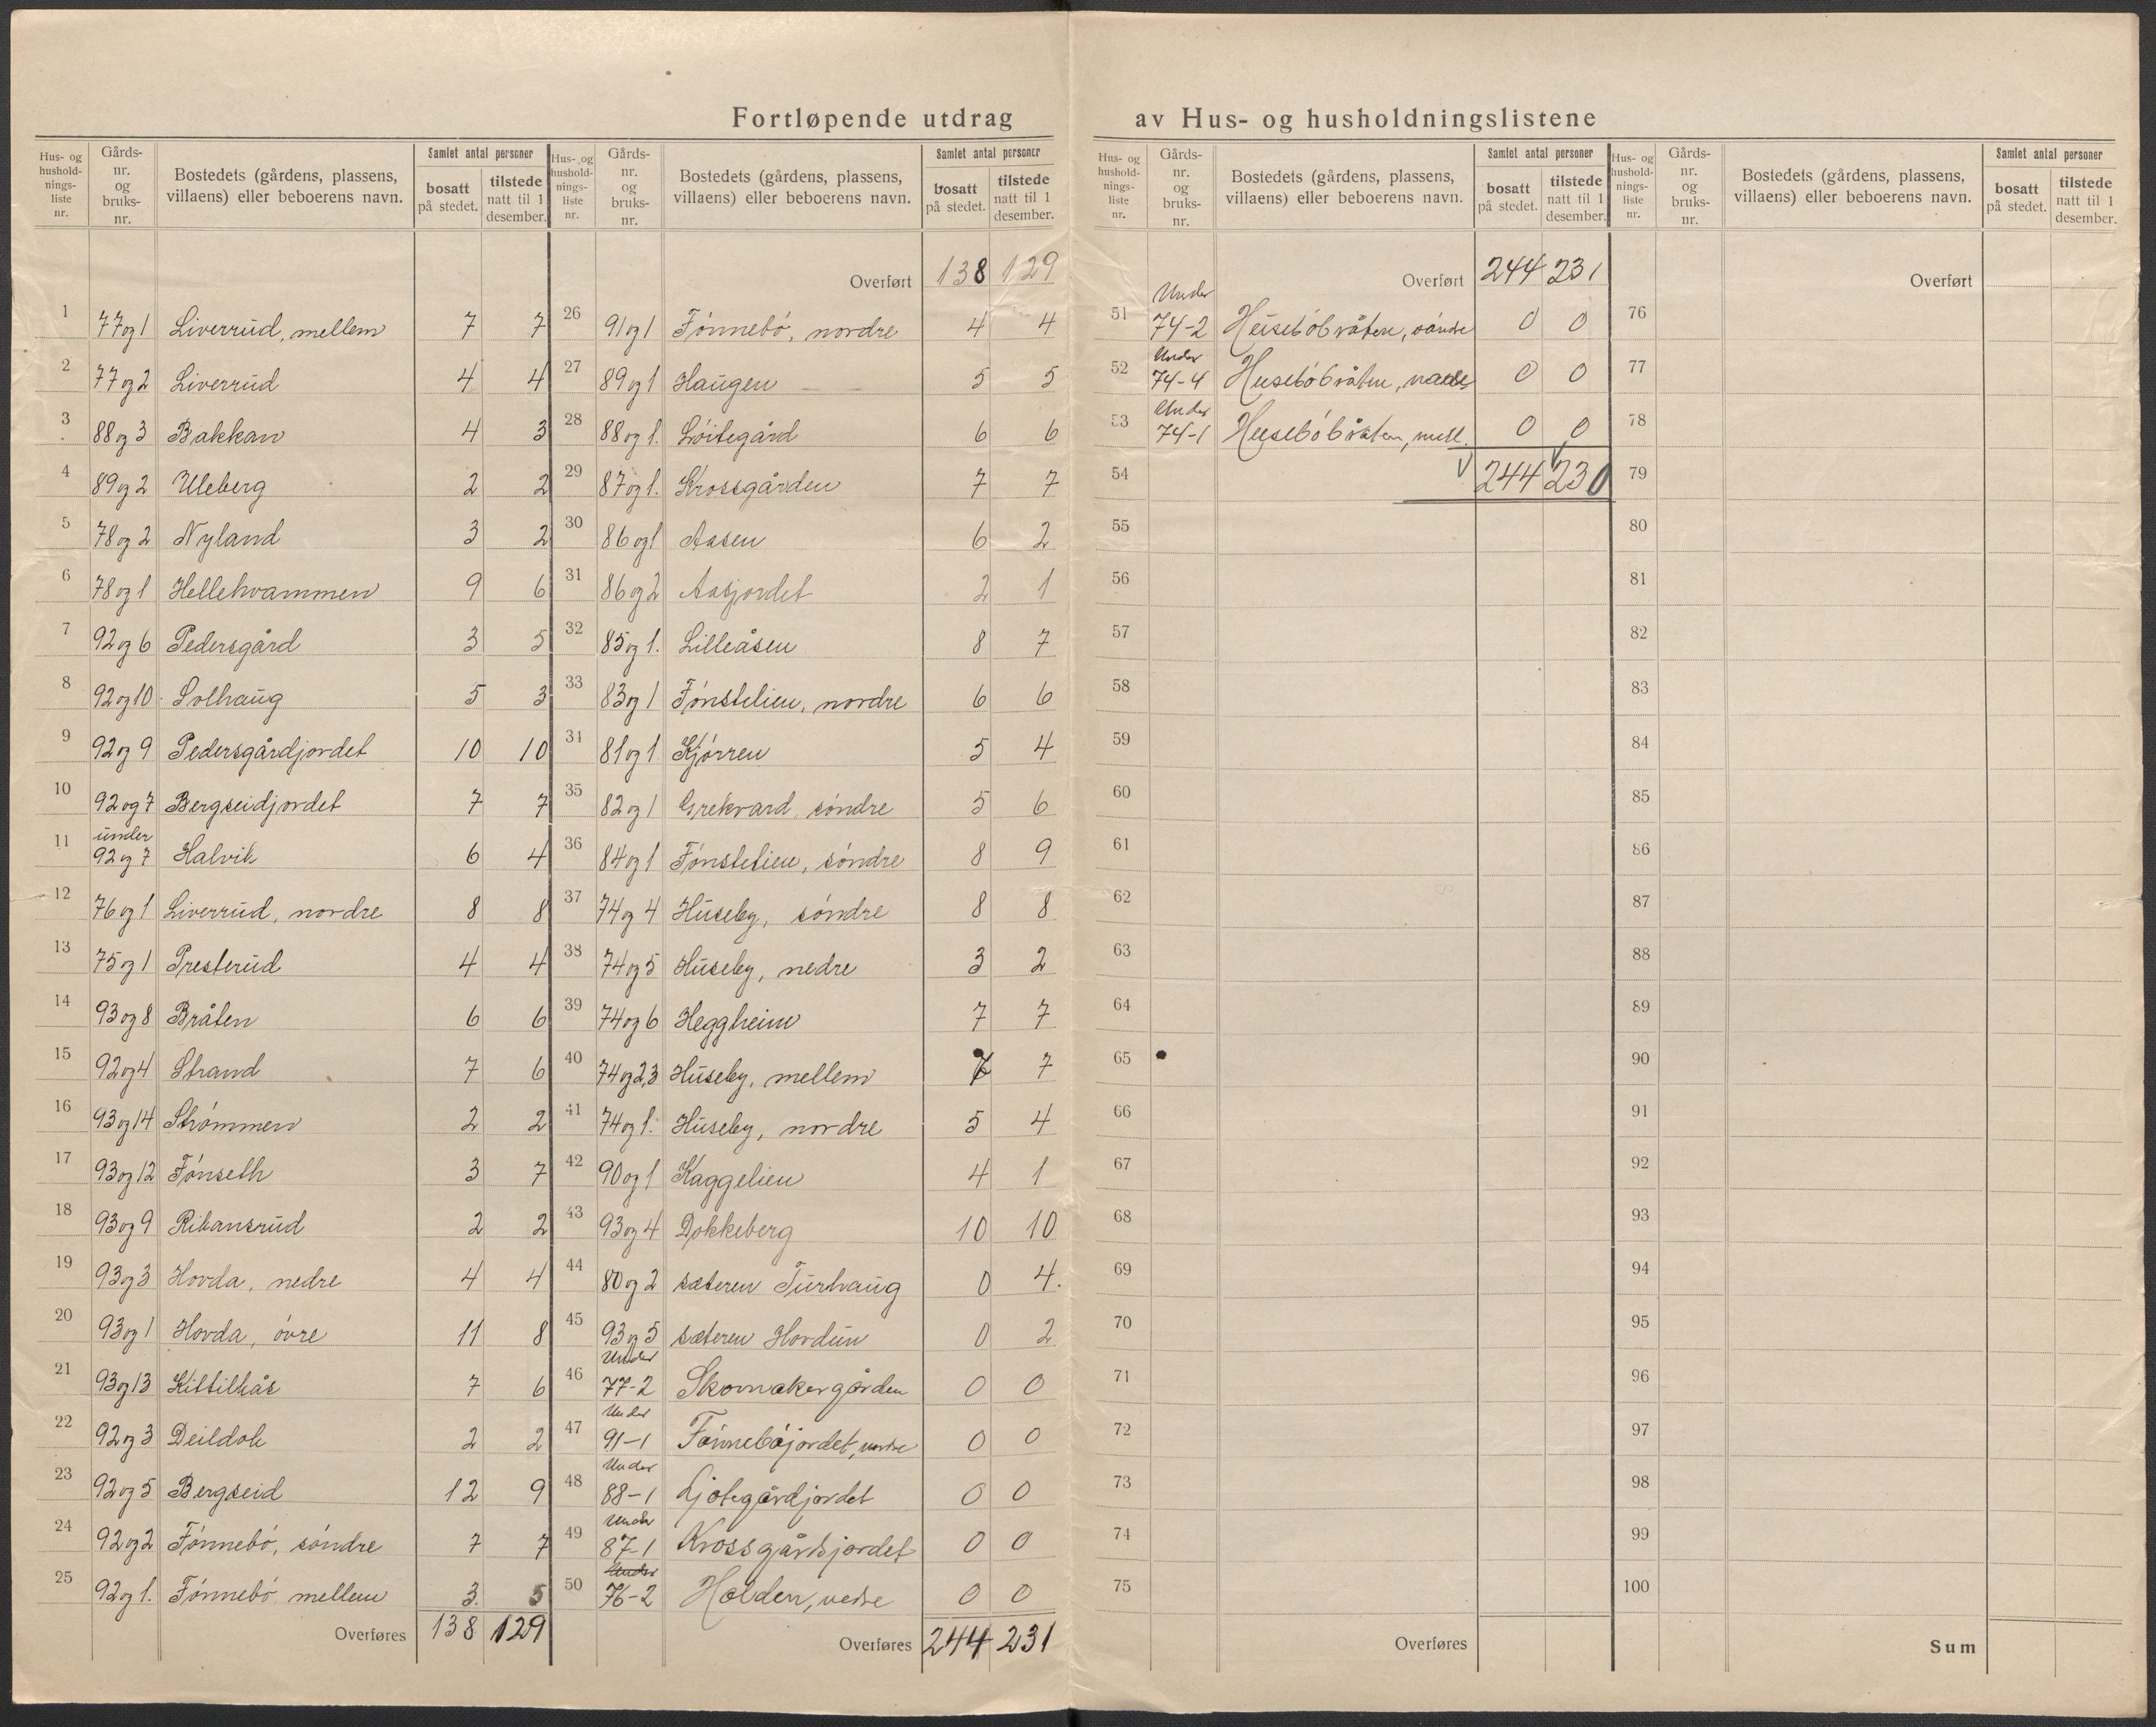 Fortløpende utdrag av Hus- og husholdningslistene
Hus- og husholdnings-liste nr. Gårds-nr. og bruks-nr. Bostedets (gårdens, plassens, villaens) eller beboerens navn. Samlet antal personer bosatt på stedet. tilstede natt til 1 desember.
1 77 og 1 Liverrud, mellem 7 7
2 77 og 2 Liverrud 4 4
3 88 og 3 Bakkan 4 3
4 89 og 2 Uleberg 2 2
5 78 og 2 Nyland 3 2
6 78 og 1 Hellehvammen 9 6
7 92 og 6 Pedersgård 3 5
8 92 og 10 Solhaug 5 3
9 92 og 9 Pedersgårdjordet 10 10
10 92 og 7 Bergseidjordet 7 7
11 under 92 og 7 Halvik 6 4
12 76 og 1 Liverrud, nordre 8 8
13 75 og 1 Presterud 4 4
14 93 og 8 Bråten 6 6
15 92 og 4 Strand 7 6
16 93 og 14 Strømmen 2 2
17 93 og 12 Fønseth 3 7
18 93 og 9 Rikansrud 2 2
19 93 og 3 Hovda, nedre 4 4
20 93 og 1 Hovda, øvre 11 8
21 93 og 13 Kittilhås 7 6
22 92 og 3 Deildok 2 2
23 92 og 5 Bergseid 12 9
24 92 og 2 Fønnebø, søndre 7 7
25 92 og 1. Fønnebø mellem 3. 5
Overføres 138 129
Hus- og husholdnings-liste nr. Gårds-nr. og bruks-nr. Bostedets (gårdens, plassens, villaens) eller beboerens navn. Samlet antal personer bosatt på stedet. tilstede natt til 1 desember.
Overført 138 129
26 91 og 1 Fønnebø, nordre 4 4
27 89 og 1 Haugen 5 5
28 88 og 1. Løitegård 6 6
29 87 og 1. Krossgården 7 7
30 86 og 1 Aasen 6 2
31 86 og 2 Aasjordet 2 1
32 85 og 1. Lilleåsen 8 7
33 83 og 1 Fønstelien, nordre 6 6
34 81 og 1 Kjørren 5 4
35 82 og 1 Grekvard søndre 5 6
36 84 og 1 Fønstelien, søndre 8 9
37 74 og 4 Huseby, søndre 8 8
38 74 og 5 Huseby, nedre 3 2
39 74 og 6 Heggheim 7 7
40 74 og 2,3 Huseby, mellem 7
41 74 og 1. Huseby, nordre 5 4
42 90 og 1 Kaggelien 4 1
43 93 og 4 Dokkeberg 10 10
44 80 og 2 sæteren Turhaug 0 4.
45 93 og 5 sæteren Hovdun 0 2
46 Under 77-2 Skomakergården 0 0
47 Under 91-1 Fønnebøjordet, nordre 0 0
48 Under 88-1 Ljøtegårdjordet 0 0
49 Under 87-1 Krossgårdsjordet 0 0
50 Under 76-2 Halden, nedre 0 0
Overføres 244 231
Hus- og husholdnings-liste nr. Gårds-nr. og bruks-nr. Bostedets (gårdens, plassens, villaens) eller beboerens navn. Samlet antal personer bosatt på stedet. tilstede natt til 1 desember.
Overført 244 231
51 Under 74-2 Husebøbråten, søndre 0 0
52 Under 74-4 Husebøbråten, 0 0
53 Under 74-1 Husebøbråten, mell. 0 0
54 244 230
55
56
57
58
59
60
61
62
63
64
65
66
67
68
69
70
71
72
73
74
75
Overføres
Hus- og husholdnings-liste nr. Gårds-nr. og bruks-nr. Bostedets (gårdens, plassens, villaens) eller beboerens navn. Samlet antal personer bosatt på stedet. tilstede natt til 1 desember.
Overført
76
77
78
79
80
81
82
83
84
85
86
87
88
89
90
91
92
93
94
95
96
97
98
99
100
Sum